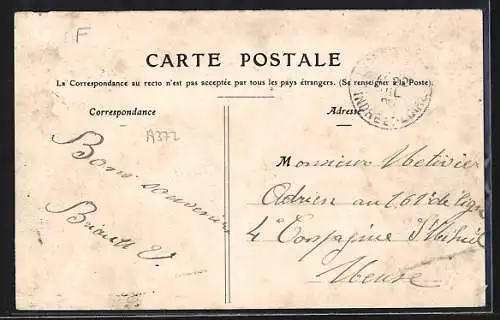 F
CARTE POSTALE
La Correspondance au recto n'est pas acceptée par tous les pays étrangers. (Se renseigner à la Poste).
Correspondance
Adresse
A372
Bons souvenirs
V.
INDRE-ET-LOIRE
Monsieur Metivier
Adrien au 161e de ligne
4e Compagnie St Mihiel
Meuse